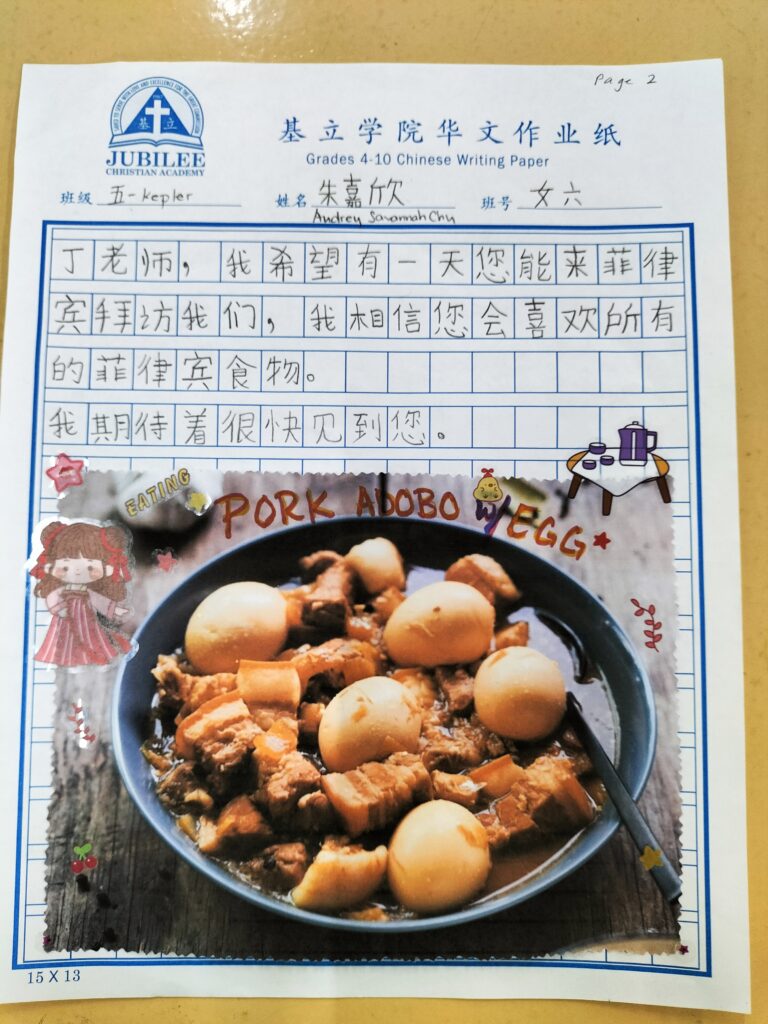 Page 2
CALLED TO SERVE WITH LOVE AND EXCELLENCE FOR THE GREAT COMMISSION
基 立
JUBILEE
CHRISTIAN ACADEMY
基立学院华文作业纸
Grades 4-10 Chinese Writing Paper
班级 五-kepler 姓名 朱嘉欣 班号 女六
Audrey Savannah Chu
丁老师，我希望有一天您能来菲律
宾拜访我们，我相信您会喜欢所有
的菲律宾食物。
我期待着很快见到您。
EATING
PORK ADOBO W/EGG
15 X 13